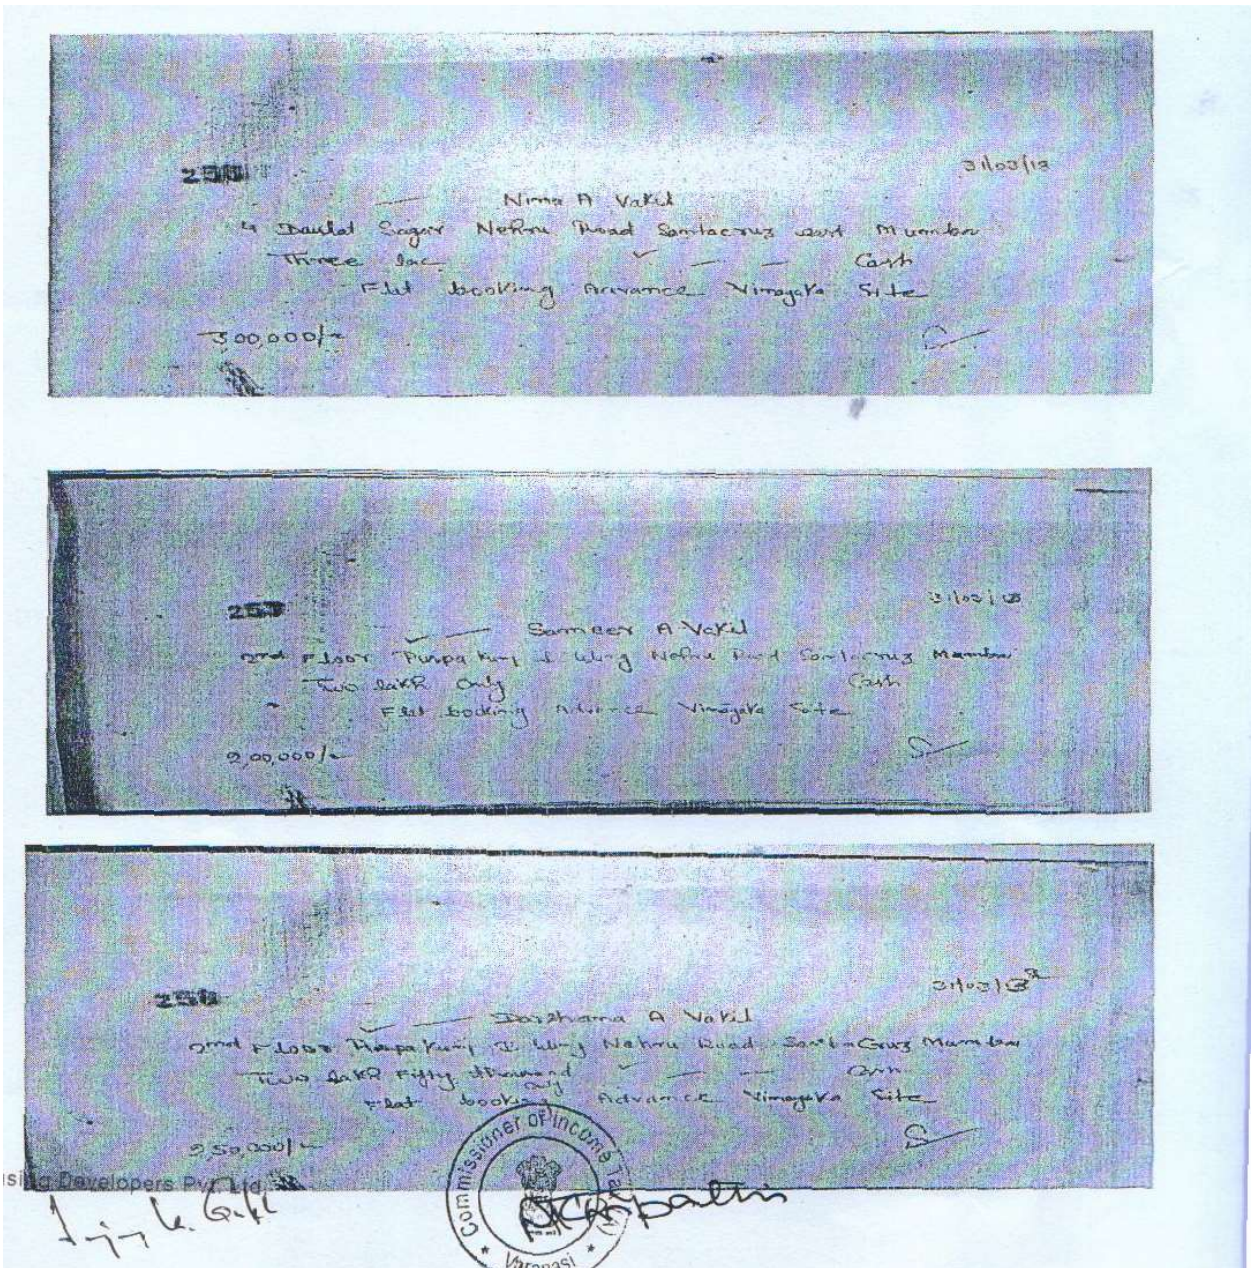 31/03/13
Nima A Vakil
4 Daulat Sagar Nehru Road Santacruz east Mumbai
Three lac Cash
Flat booking Advance Vinayaka Site
300,000/-
31/03/13
Sameer A Vakil
2nd Floor Puspa Kunj Wing Nehru Road Santacruz Mumbai
Two lakh Only Cash
Flat booking Advance Vinayaka Site
2,00,000/-
31/03/13
Darshana A Vakil
2nd Floor Puspa Kunj Wing Nehru Road Santa Cruz Mumbai
Two lakh Fifty thousand Only Cash
Flat booking Advance Vinayaka Site
2,50,000/-
Developers Pvt. Ltd.
Commissioner of Income Tax
Varanasi